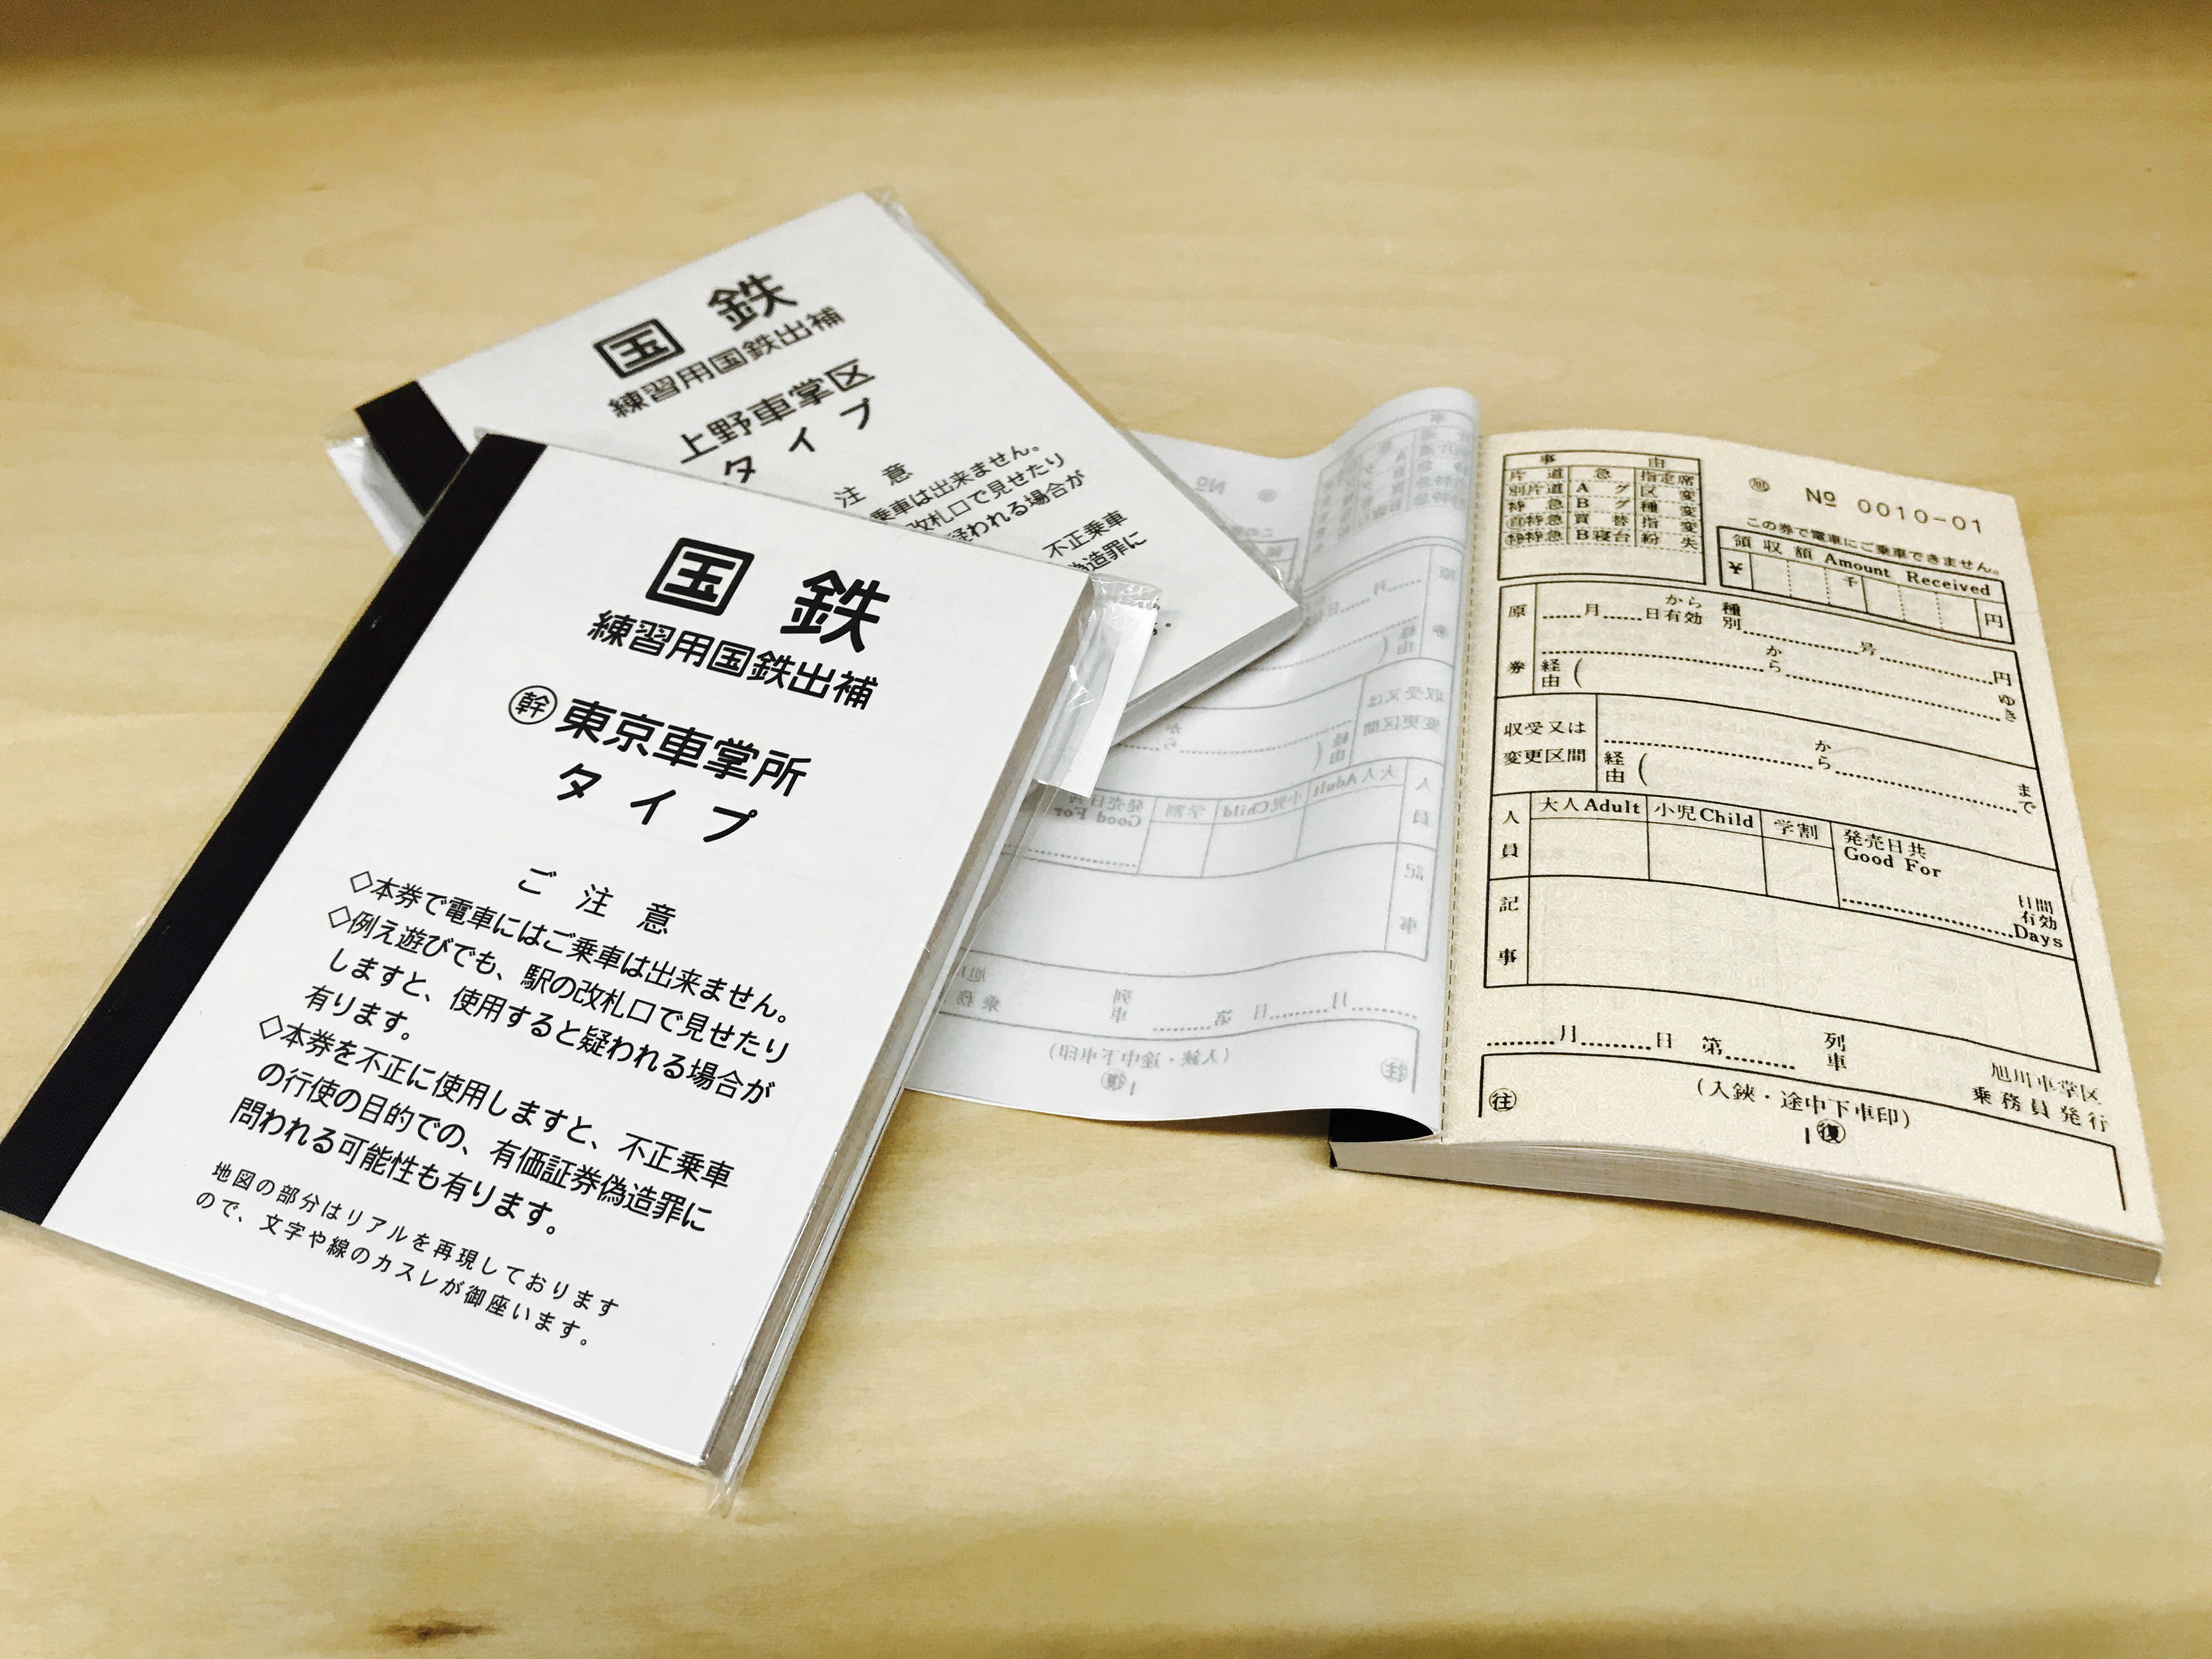 国 鉄
練習用国鉄出補
上野車掌区
タイプ
注 意
乗車は出来ません。
改札口で見せたり
疑われる場合が
不正乗車
偽造罪に
国 鉄
練習用国鉄出補
㊥東京車掌所
タイプ
ご 注 意
◇本券で電車にはご乗車は出来ません。
◇例え遊びでも、駅の改札口で見せたり
しますと、使用すると疑われる場合が
有ります。
◇本券を不正に使用しますと、不正乗車
の行使の目的での、有価証券偽造罪に
問われる可能性も有ります。
地図の部分はリアルを再現しております
ので、文字や線のカスレが御座います。
事 由
片道 急 指定席
別片道 Aグ 区変
特急 Bグ 種変
特急 貰替 指変
特特急 B寝台 紛失
旭 № 0010-01
この券で電車にご乗車できません。
領収額 Amount Received
¥ 千 円
原券
月 日から有効 種別 号 円
から ゆき
経由 (
収受又は
変更区間
から まで
経由 (
人員
大人Adult 小児Child 学割 発売日共
Good For
日間
有効
Days
記事
月 日 第 列車
旭川車掌区
乗務員発行
(入鋏・途中下車印)
往 復